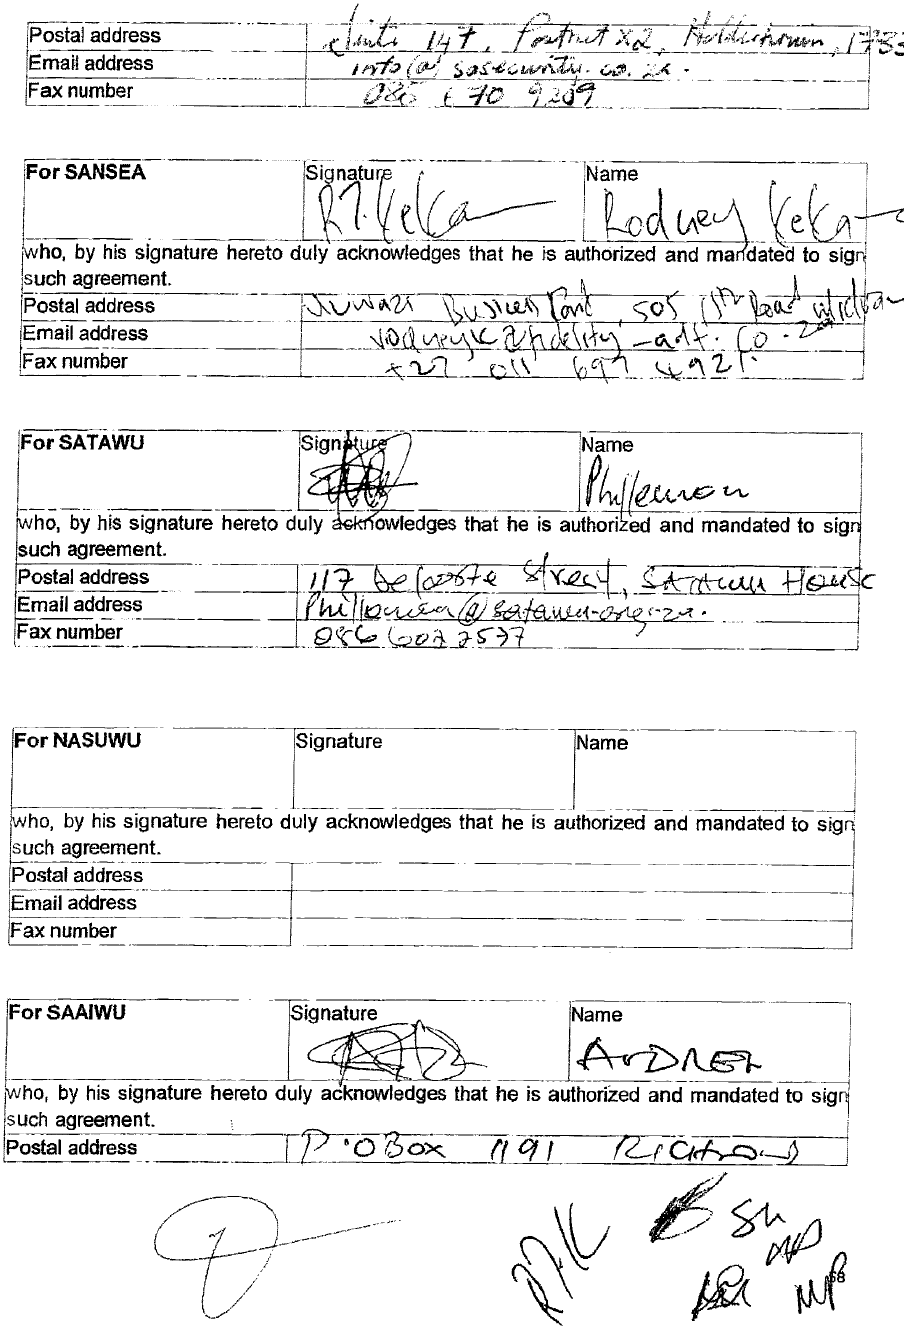 Postal address 147, Postnet X2, 1733
Email address info@sosecurity.co.za.
Fax number 086 670 9209
For SANSEA Signature Name
R.J. Keka Rodney Keka
who, by his signature hereto duly acknowledges that he is authorized and mandated to sign
such agreement.
Postal address Business Park, 505 15th Road
Email address rodneyk@fidelity-adt.co.za
Fax number +27 011 697 4921.
For SATAWU Signature Name
Phillemon
who, by his signature hereto duly acknowledges that he is authorized and mandated to sign
such agreement.
Postal address 117 Street, SATAWU House
Email address Phillemon@satawu.org.za.
Fax number 086 6027537
For NASUWU Signature Name
who, by his signature hereto duly acknowledges that he is authorized and mandated to sign
such agreement.
Postal address
Email address
Fax number
For SAAIWU Signature Name
who, by his signature hereto duly acknowledges that he is authorized and mandated to sign
such agreement.
Postal address P.O Box 1191
RJK SM
MP
68